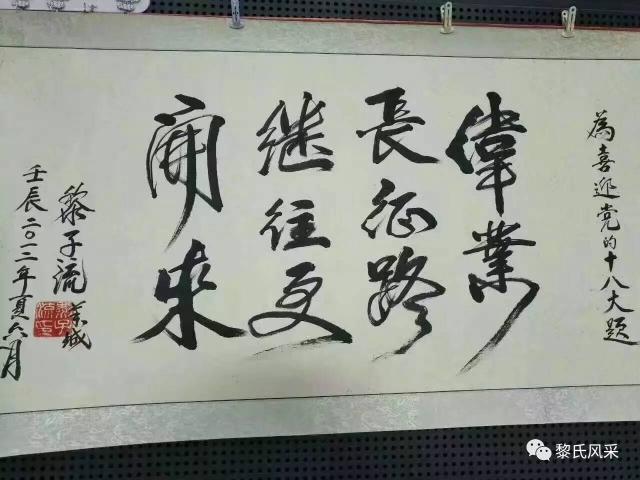 為喜迎党的十八大题
偉業
長征路
继往更
開来
黎子流
羊城
壬辰二〇一二年夏六月
黎氏风采